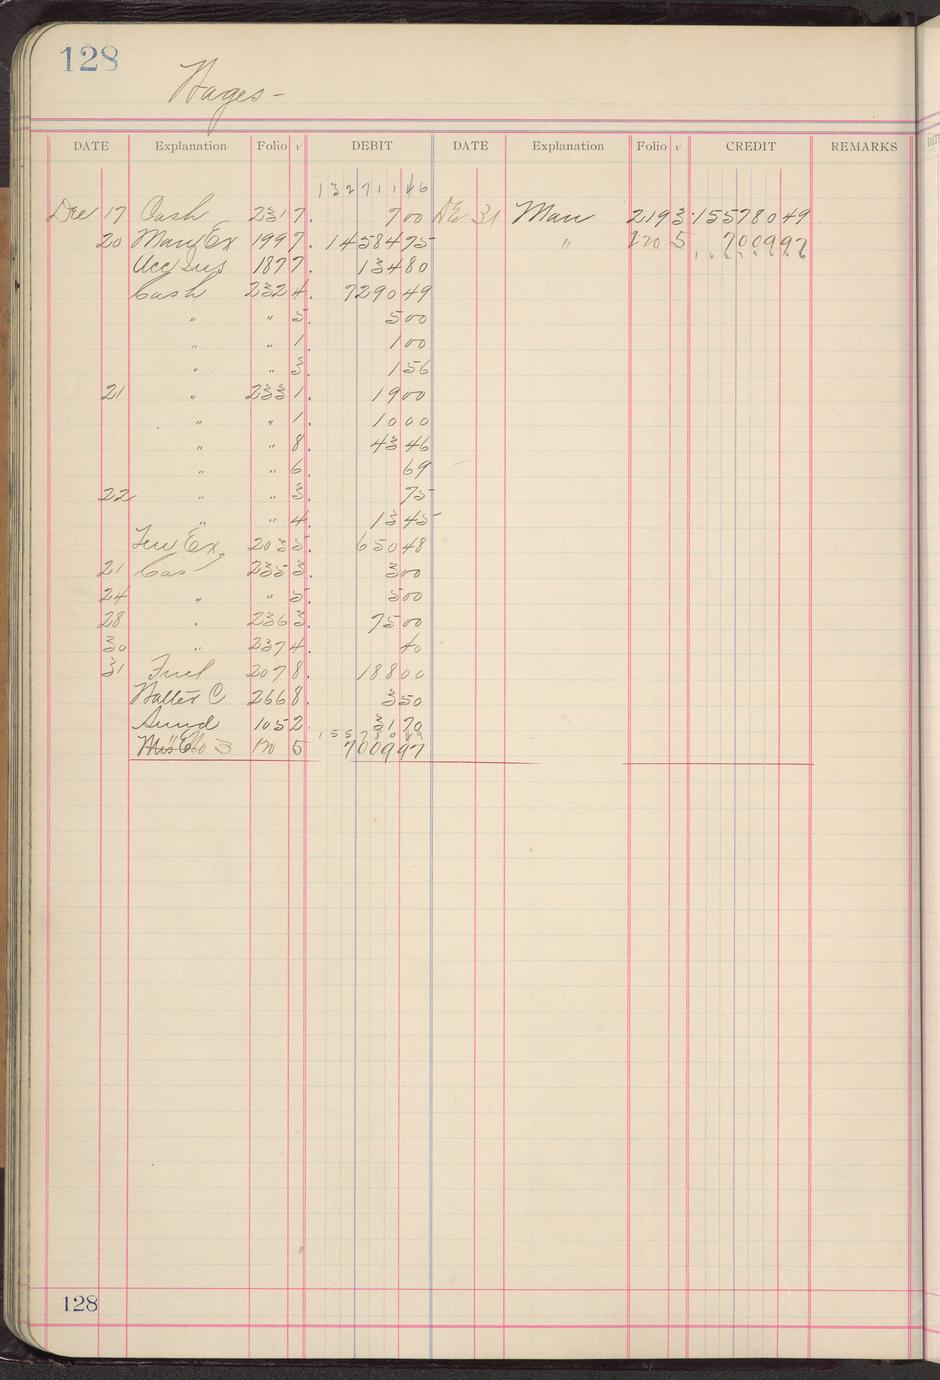 128
Wages-
DATE Explanation Folio √ DEBIT DATE Explanation Folio √ CREDIT REMARKS
13271146
Dec 17 Cash 231 7. 700 DE 31 Man 219 3. 15578049
20 Man Ex 199 7. 1458475 " 120 5 700997
Acc Sus 187 7. 13480
Cash 232 4. 729049
" " 5. 500
" " 1. 100
" " 3. 156
21 " 233 1. 1900
" " 1. 1000
" " 8. 4346
" " 6. 69
22 " " 3. 75
" " 4. 1345
Ex 203 5. 65048
21 Cas 235 3. 300
24 " " 5. 500
28 " 236 3. 7500
30 " 237 4. 40
31 Fuel 207 8. 18800
Walter C 266 8. 350
Sund 105 2. 3170
15578049
120 5 700997
128